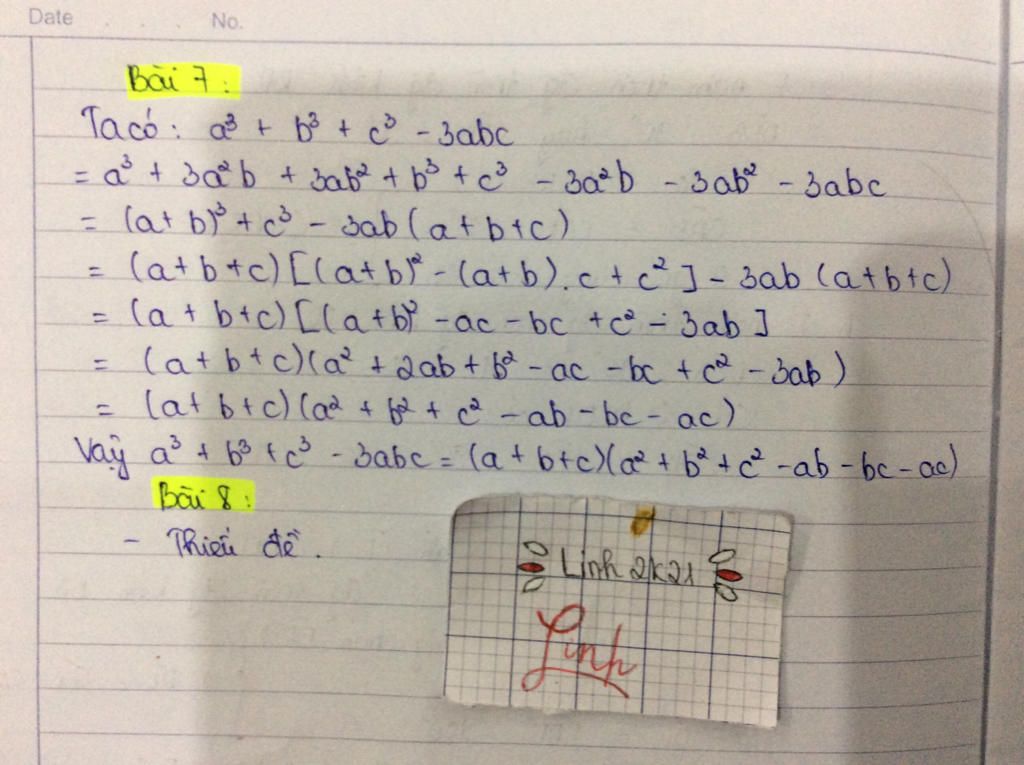 Date No.
Bài 7:
Ta có: a³ + b³ + c³ - 3abc
= a³ + 3a²b + 3ab² + b³ + c³ - 3a²b - 3ab² - 3abc
= (a + b)³ + c³ - 3ab (a + b + c)
= (a + b + c) [(a + b)² - (a + b) . c + c²] - 3ab (a + b + c)
= (a + b + c) [(a + b)² - ac - bc + c² - 3ab]
= (a + b + c)(a² + 2ab + b² - ac - bc + c² - 3ab)
= (a + b + c)(a² + b² + c² - ab - bc - ac)
Vậy a³ + b³ + c³ - 3abc = (a + b + c)(a² + b² + c² - ab - bc - ac)
Bài 8:
- Thiếu đề.
Linh 2k21
Linh